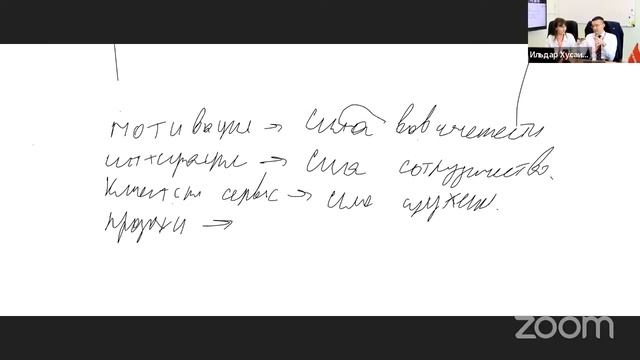 Ильдар Хусаи...
мотивация → сила вовлечености
интеграция → сила сотрудничество.
клиентст сервис → сила служен.
продажи →
zoom